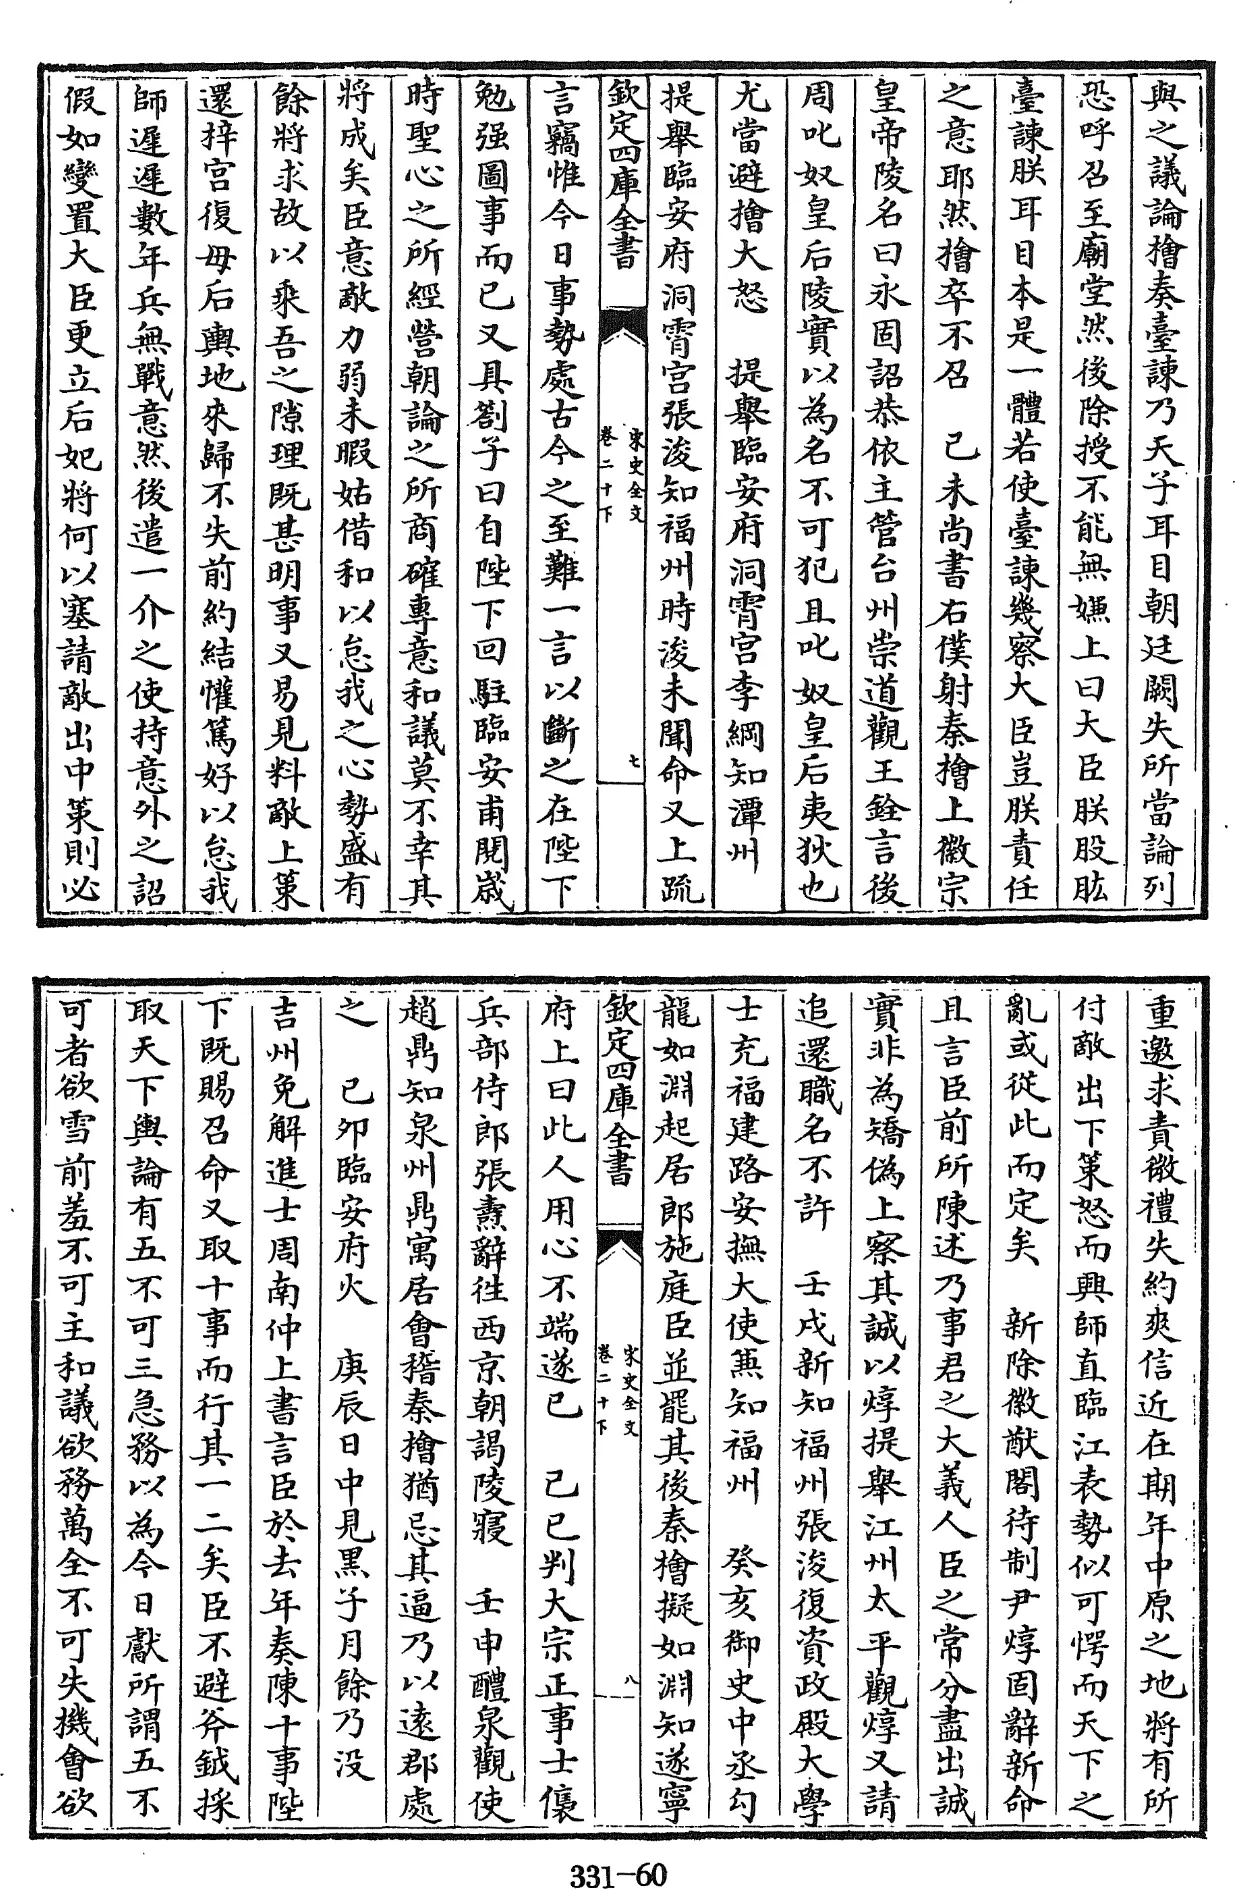 與之議論檜奏臺諫乃天子耳目朝廷闕失所當論列
恐呼召至廟堂然後除授不能無嫌上曰大臣朕股肱
臺諫朕耳目本是一體若使臺諫幾察大臣豈朕責任
之意耶然檜卒不召　己未尚書右僕射秦檜上徽宗
皇帝陵名曰永固詔恭依主管台州崇道觀王銍言後
周叱奴皇后陵實以為名不可犯且叱奴皇后夷狄也
尤當避檜大怒　提舉臨安府洞霄宮李綱知潭州
提舉臨安府洞霄宮張浚知福州時浚未聞命又上疏
欽定四庫全書　宋史全文卷二十下　七
言竊惟今日事勢處古今之至難一言以斷之在陛下
勉强圖事而已又具劄子曰自陛下回駐臨安甫閱歲
時聖心之所經營朝論之所商確專意和議莫不幸其
將成矣臣意敵力弱未暇姑借和以怠我之心勢盛有
餘將求故以乘吾之隙理既甚明事又易見料敵上策
還梓宮復母后輿地來歸不失前約結懽篤好以怠我
師遲遲數年兵無戰意然後遣一介之使持意外之詔
假如變置大臣更立后妃將何以塞請敵出中策則必
重邀求責微禮失約爽信近在期年中原之地將有所
付敵出下策怒而興師直臨江表勢似可愕而天下之
亂或從此而定矣　新除徽猷閣待制尹焞固辭新命
且言臣前所陳述乃事君之大義人臣之常分盡出誠
實非為矯偽上察其誠以焞提舉江州太平觀焞又請
追還職名不許　壬戌新知福州張浚復資政殿大學
士充福建路安撫大使兼知福州　癸亥御史中丞勾
龍如淵起居郎施庭臣並罷其後秦檜擬如淵知遂寧
欽定四庫全書　宋史全文卷二十下　八
府上曰此人用心不端遂已　己巳判大宗正事士㒟
兵部侍郎張燾辭徃西京朝謁陵寢　壬申醴泉觀使
趙鼎知泉州鼎寓居會稽秦檜猶忌其逼乃以遠郡處
之　己卯臨安府火　庚辰日中見黑子月餘乃没
吉州免解進士周南仲上書言臣於去年奏陳十事陛
下既賜召命又取十事而行其一二矣臣不避斧鉞採
取天下輿論有五不可三急務以為今日獻所謂五不
可者欲雪前羞不可主和議欲務萬全不可失機會欲
331-60